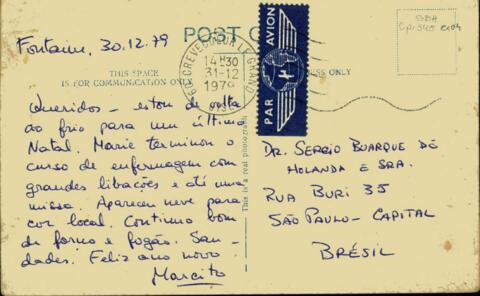 Fontaine, 30.12.79
POST
THIS SPACE
IS FOR COMMUNICATION ONLY
Queridos – estou de volta
ao frio para um último
Natal. Marie terminou o
curso de enfermagem com
grandes libações e até uma
missa. Apareceu neve para
cor local. Continuo bom
de forno e fogão. Sau-
dades! Feliz ano novo.
Marcito
This is a real photograph
CREVECOEUR LE GRAND
14H30
31-12
1979
PAR AVION
ESS ONLY
SBH
Dr. Sergio Buarque de
Holanda e Sra.
Rua Buri 35
São Paulo - Capital
Brésil